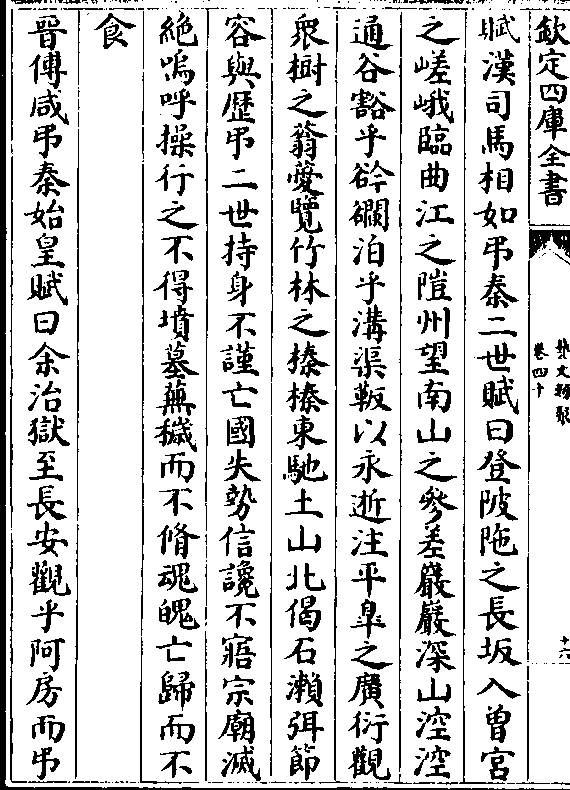 欽定四庫全書
藝文類聚
卷四十
十六
賦漢司馬相如弔秦二世賦曰登陂陁之長坂入曾宮
之嵯峨臨曲江之隑州望南山之參差巖巖深山涳涳
通谷豁乎谽㵎泊乎溝渠靸以永逝注平臯之廣衍觀
衆樹之蓊薆覽竹林之榛榛東馳土山北偈石瀨弭節
容與歷弔二世持身不謹亡國失勢信讒不寤宗廟滅
絶嗚呼操行之不得墳墓蕪穢而不脩魂魄亡歸而不
食
晉傅咸弔秦始皇賦曰余治獄至長安觀乎阿房而弔